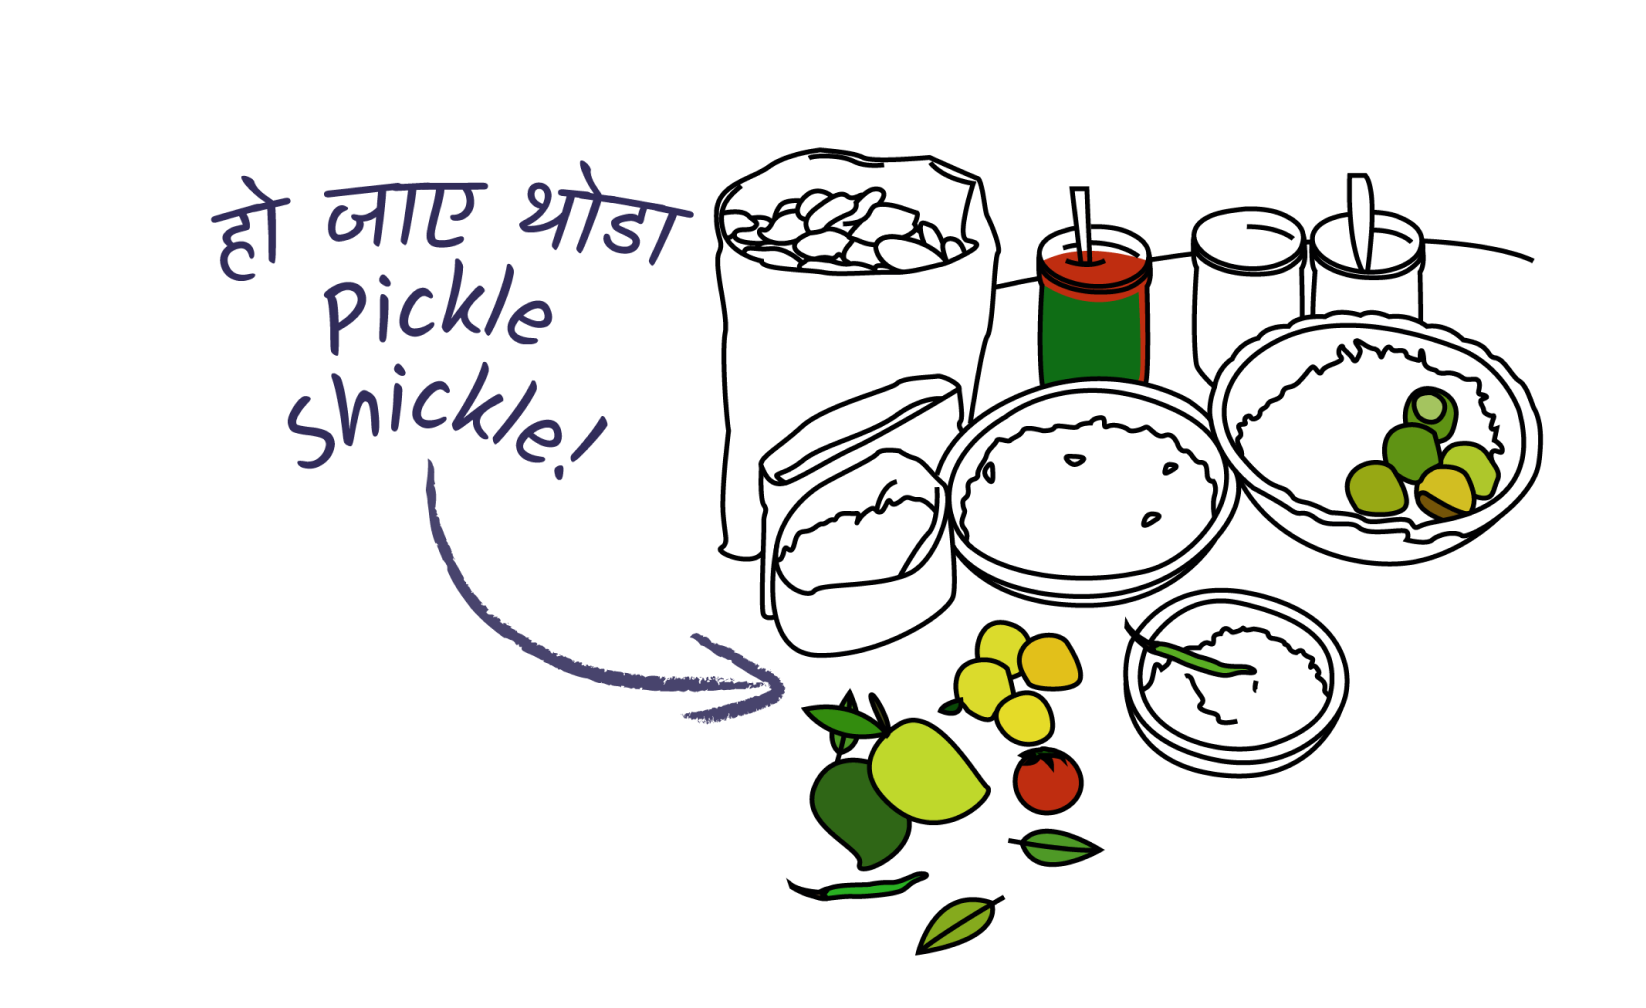 हो जाए थोडा
pickle
shickle!